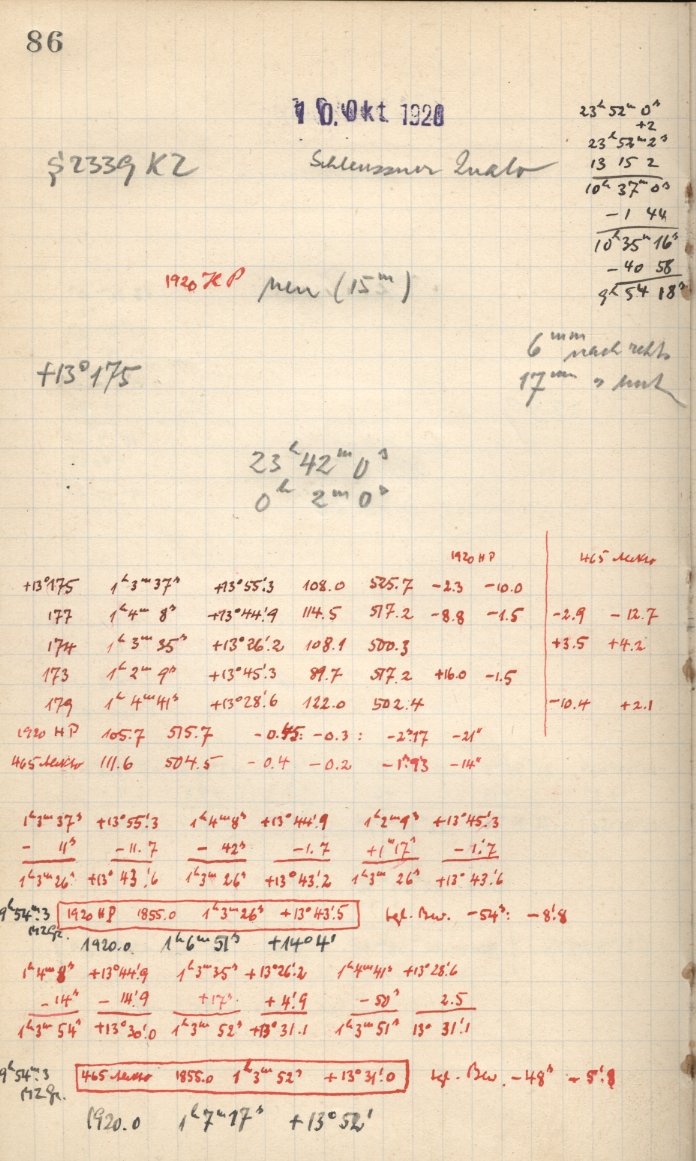 86
10. Okt 1920
23ʰ 52ᵐ 0ˢ
+2
23ʰ 52ᵐ 2ˢ
13 15 2
10ʰ 37ᵐ 0ˢ
-1 44
10ʰ 35ᵐ 16ˢ
-40 58
9ʰ 54 18ˢ
2339 KZ Schleussner
1920 HP neu (15ᵐ)
6ᵐᵐ nach rechts
17ᵐᵐ
+13°175
23ʰ 42ᵐ 0ˢ
0ʰ 2ᵐ 0ˢ
1920 HP 465 Alekto
+13°175 1ʰ 3ᵐ 37ˢ +13°55'.3 108.0 525.7 -2.3 -10.0
177 1ʰ 4ᵐ 8ˢ +13°44'.9 114.5 517.2 -8.8 -1.5 -2.9 -12.7
174 1ʰ 3ᵐ 35ˢ +13°26'.2 108.1 500.3 +3.5 +4.2
173 1ʰ 2ᵐ 9ˢ +13°45'.3 89.7 517.2 +16.0 -1.5
179 1ʰ 4ᵐ 41ˢ +13°28'.6 122.0 502.4 -10.4 +2.1
1920 HP 105.7 515.7 -0.45: -0.3 : -2ˢ.17 -21"
465 Alekto 111.6 504.5 -0.4 -0.2 -1ˢ.93 -14"
1ʰ 3ᵐ 37ˢ +13°55'.3 1ʰ 4ᵐ 8ˢ +13°44'.9 1ʰ 2ᵐ 9ˢ +13°45'.3
- 11ˢ -11.7 - 42ˢ -1.7 +1ᵐ 17ˢ -1'.7
1ʰ 3ᵐ 26ˢ +13°43'.6 1ʰ 3ᵐ 26ˢ +13°43'.2 1ʰ 3ᵐ 26ˢ +13°43'.6
9ʰ 54ᵐ.3 MZGr. 1920 HP 1855.0 1ʰ 3ᵐ 26ˢ +13°43'.5 tgl. Bew. -54ˢ: -8'.8
1920.0 1ʰ 6ᵐ 51ˢ +14°4'
1ʰ 4ᵐ 8ˢ +13°44'.9 1ʰ 3ᵐ 35ˢ +13°26'.2 1ʰ 4ᵐ 41ˢ +13°28'.6
-14ˢ -14'.9 +17ˢ +4'.9 -50ˢ 2.5
1ʰ 3ᵐ 54ˢ +13°30'.0 1ʰ 3ᵐ 52ˢ +13°31'.1 1ʰ 3ᵐ 51ˢ 13°31'.1
9ʰ 54ᵐ.3 MZGr. 465 Alekto 1855.0 1ʰ 3ᵐ 52ˢ +13°31'.0 tgl. Bew. -48ˢ -5'.8
1920.0 1ʰ 7ᵐ 17ˢ +13°52'